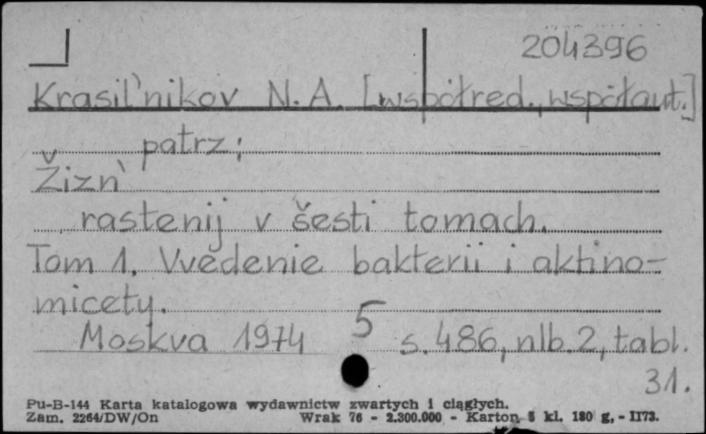 204396
Krasil'nikov N.A. [współred., współaut.]
patrz:
Žizn'
rastenij v šesti tomach.
Tom 1. Vvedenie bakterii i aktino-
micety.
Moskva 1974 5 s. 486, nlb. 2, tabl.
31.
Pu-B-144 Karta katalogowa wydawnictw zwartych i ciągłych.
Zam. 2264/DW/On Wrak 76 - 2.300.000 - Karton 5 kl. 180 g, - II73.